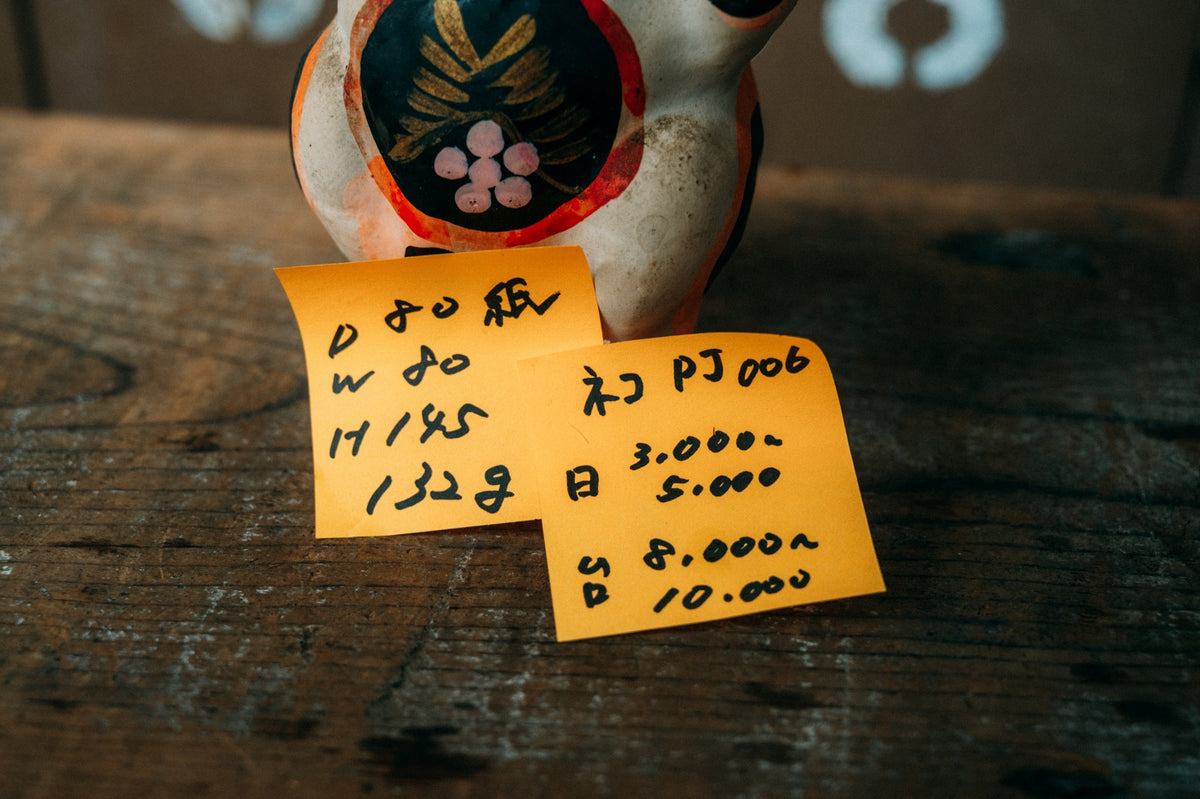 D 80 紙
W 80
H 145
132g
ネコ PJ006
3.000~
日 5.000
8.000~
10.000